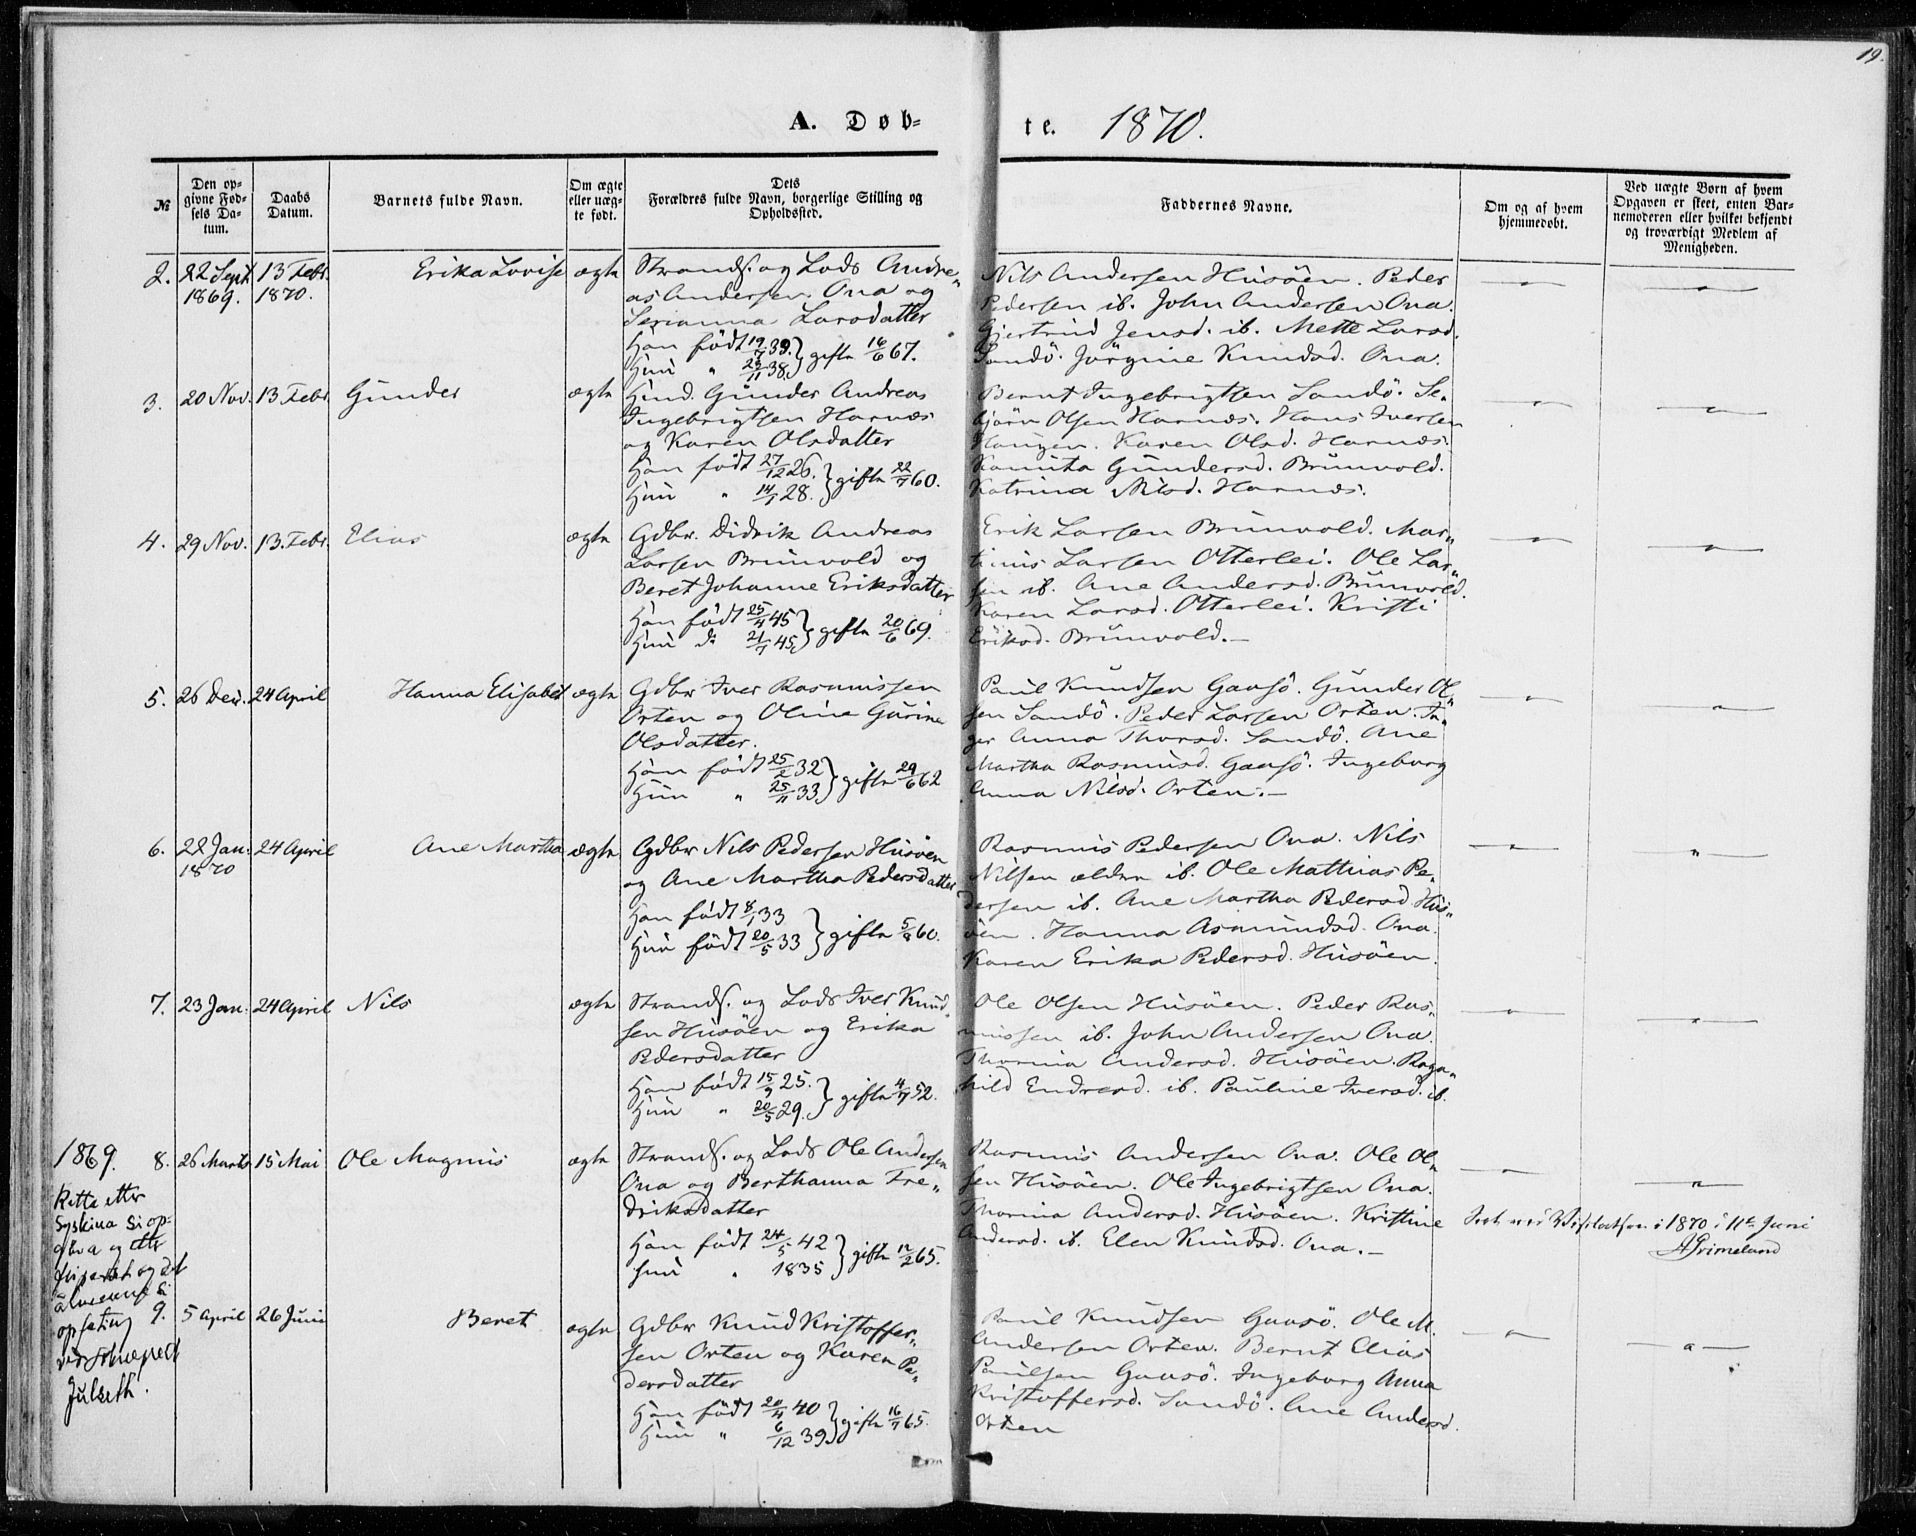 19.
A. Døb-
te. 1870.
№
Den op-
givne Fød-
sels Da-
tum.
Daabs
Datum.
Barnets fulde Navn.
Om ægte
eller uæg-
te født.
Dets
Forældres fulde Navn, borgerlige Stilling og
Opholdssted.
Faddernes Navne.
Om og af hvem
hjemmedøbt.
Ved uægte Børn af hvem
Opgaven er skeet, enten Bar-
nemoderen eller hvilket bekjendt
og troværdigt Medlem af
Menigheden.
2.
22 Sept.
1869.
13 Febr.
1870.
Erika Lovise
ægte
Strands. og Lods Andre-
as Andersen Ona og
Serianna Larsdatter
Han født 19/7 39.
Hun " 23/11 38. } gifte 16/6 67.
Nils Andersen Husøen. Peder
Pedersen ib. John Andersen Ona.
Gjertrud Jensd. ib. Mette Larsd.
Sandö. Jörgine Knudsd. Ona.
3.
20 Nov.
13 Febr.
Gunder
ægte
Husd. Gunder Andreas
Ingebrigtsen Harnæs
og Karen Olsdatter
Han født 27/12 26.
Hun " 14/1 28. } gifte 22/7 60.
Bernt Ingebrigtsen Sandö. Se-
björn Olsen Harnæs. Hans Iversen
Haugen. Karen Olsd. Harnæs.
Gundersd. Brunvold.
Katrina Nilsd. Harnæs.
4.
29 Nov.
13. Febr.
Elias
ægte
Gdbr. Didrik Andreas
Larsen Brunvold og
Beret Johanne Eriksdatter
Han født 25/4 45
Hun do 21/7 45. } gifte 20/6 69.
Erik Larsen Brunvold. Mar-
tinus Larsen Otterlei. Ole Lar-
sen ib. Ane Andersd. Brunvold.
Karen Larsd. Otterlei. Kristi
Eriksd. Brunvold.
5.
26 Dec.
24 April
Hanna Elisabet
ægte
Gdbr Iver Rasmussen
Orten og Oline Gurine
Olsdatter.
Han født 25/2 32
Hun " 25/11 33 } gifte 29/6 62
Paul Knudsen Gaasö. Gunder Ol-
sen Sandö. Peder Larsen Orten. In-
ger Anna Thorsd. Sandö. Ane
Martha Rasmusd. Gaasö. Ingeborg
Anna Nilsd. Orten.
6.
22 Jan.
1870
24 April
Ane Martha
ægte
Gdbr Nils Pedersen Husøen
og Ane Martha Pedersdatter
Han født 8/1 33
Hun født 20/5 33 } gifte 5/8 60.
Rasmus Pedersen Ona. Nils
Nilsen ældre ib. Ole Mathias Pe-
dersen ib. Ane Martha Pedersd. Hus-
öen. Hanna Asmundsd. Ona.
Karen Erika Pedersd. Husöen.
7.
23 Jan.
24 April
Nils
ægte
Strands. og Lods Iver Knud-
sen Husöen og Erika
Pedersdatter
Han født 15/9 25.
Hun " 20/5 29. } gifte 4/7 52.
Ole Olsen Husöen. Peder Ras-
mussen ib. John Andersen Ona.
Thorina Andersd. Husöen. Ragn-
hild Endresd. ib. Pauline Iversd. ib.
1869.
8.
26 Marts
15 Mai
Ole Magnus
ægte
Strands. og Lods Ole Andersen
Ona og Berthanna Fre-
driksdatter
Han født 24/5 42
Hun " 1835 } gifte 12/2 65.
Rasmus Andersen Ona. Ole Ol-
sen Husöen. Ole Ingebrigtsen Ona.
Thorina Andersd. Husöen. Kristine
Andersd. ib. Elen Knudsd. Ona.
i 1870 11te Juni
AGrimelund
Retta etter
Syskina si op-
gåva og etter
og det
si
opfating
Julseth.
9.
5 April
26 Juni
Beret
ægte
Gdbr Knud Kristoffer-
sen Orten og Karen Pe-
dersdatter
Han født 20/4 40
Hun " 6/12 39 } gifte 16/7 65.
Paul Knudsen Gaasö. Ole M.
Andersen Orten. Bernt Elias
Paulsen Gaasö. Ingeborg Anna
Kristoffersd. Sandö. Ane Andersd.
Orten